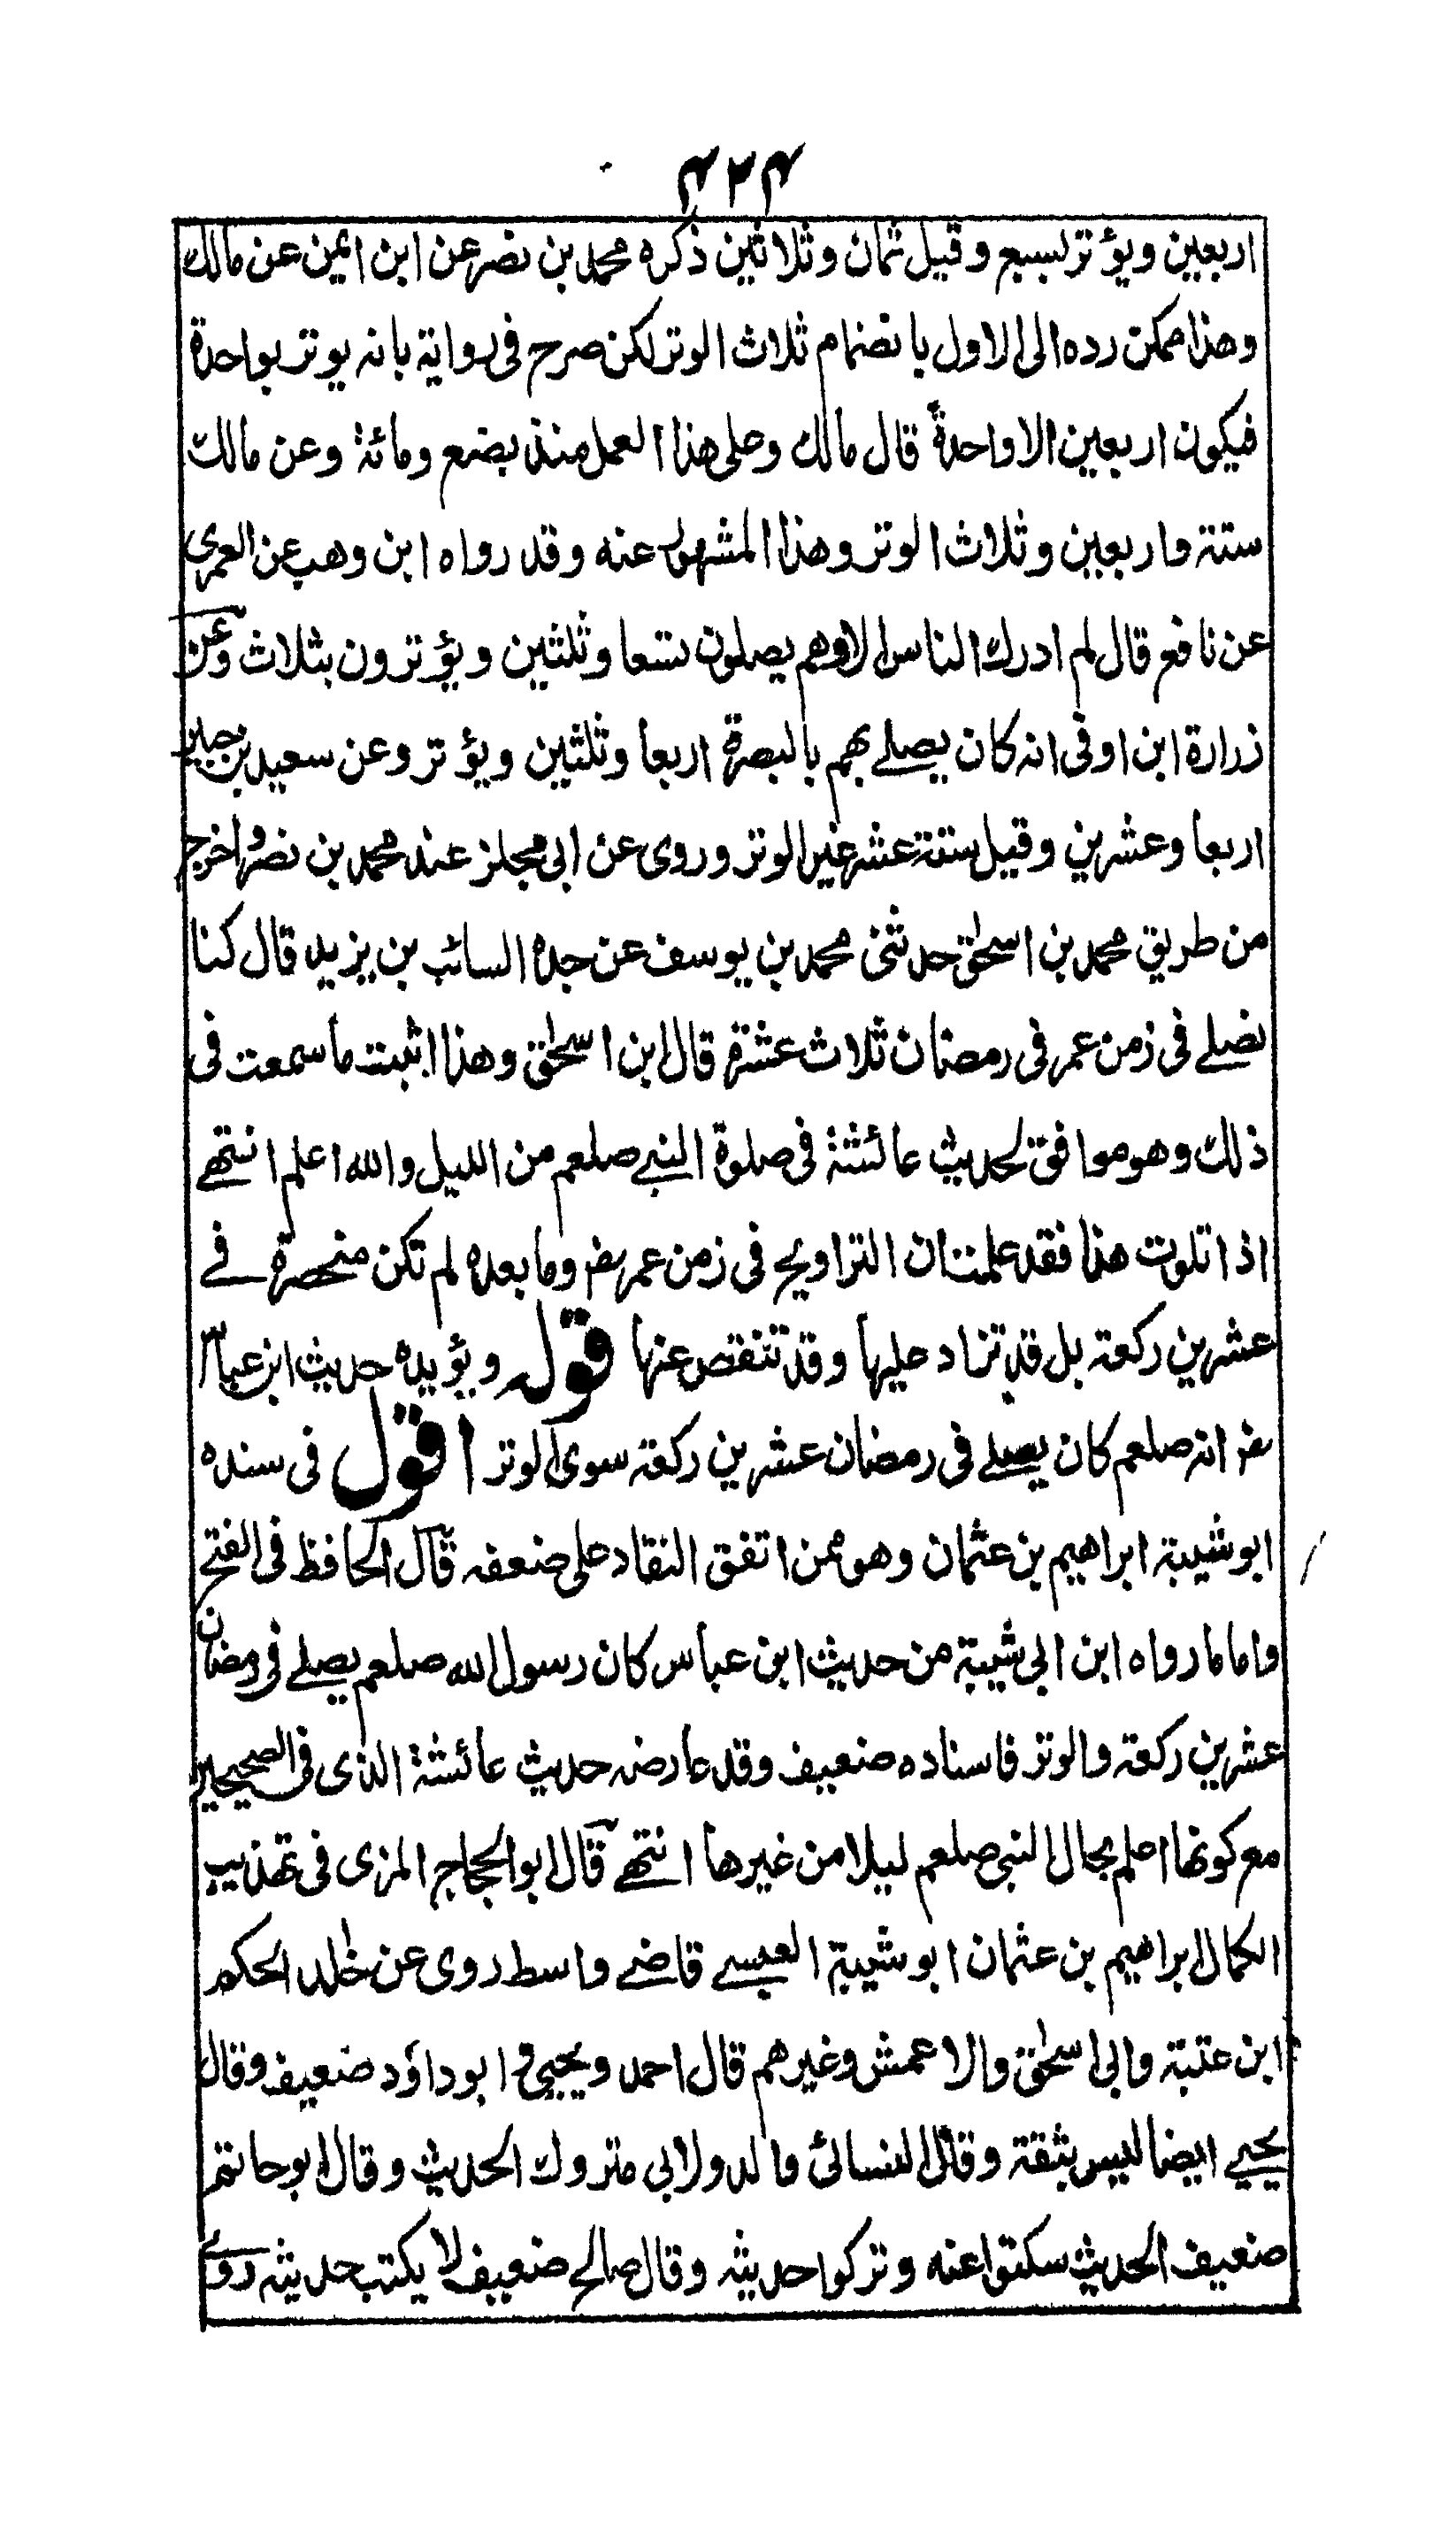 ۴۲۴
اربعين ويؤتر لسبع وقيل ثمان وثلاثين ذكره محمد بن نصر عن ابن ايمن عن مالك
وهذا ممكن رده الى الاول بانضمام ثلاث الوتر لكن صرح فى رواية بانه يوتر بواحدة
فيكون اربعين الا واحدة قال مالك وعلى هذا العمل منذ بضع ومائة وعن مالك
ستة واربعين وثلاث الوتر وهذا المشهور عنه وقد رواه ابن وهب عن العمرى
عن نافع قال لم ادرك الناس الا وهم يصلون تسعا وثلثين ويؤترون بثلاث وعن
زرارة ابن اوفى انه كان يصلے بهم بالبصرة اربعا وثلثين ويؤتر وعن سعيد بن جبير
اربعا وعشرين وقيل ستة عشر غير الوتر وروى عن ابى مجلز عند محمد بن نصر واخرج
من طريق محمد بن اسحٰق حدثنى محمد بن يوسف عن جده السائب بن يزيد قال كنا
نصلے فى زمن عمر فى رمضان ثلاث عشرة قال ابن اسحٰق وهذا اثبت ما سمعت فى
ذلك وهو موافق لحديث عائشة فى صلوة النبے صلعم من الليل والله اعلم انتهے
اذا تلوت هذا فقد علمت ان التراويح فى زمن عمر رض وما بعده لم تكن منحصرة فے
عشرين ركعة بل قد تزاد عليها وقد تنقص عنها قوله ويؤيده حديث ابن عباس
رض انه صلعم كان يصلے فى رمضان عشرين ركعة سوى الوتر اقول فى سنده
ابو شيبة ابراهيم بن عثمان وهو ممن اتفق النقاد على ضعفه قال الحافظ فى الفتح
واما ما رواه ابن ابى شيبة من حديث ابن عباس كان رسول الله صلعم يصلے فى رمضان
عشرين ركعة والوتر فاسناده ضعيف وقد عارضه حديث عائشة الذى فى الصحيحين
مع كونها اعلم بحال النبى صلعم ليلا من غيرها انتهے قال ابو الحجاج المزى فى تهذيب
الكمال ابراهيم بن عثمان ابو شيبة العبسے قاضے واسط روى عن خاله الحكم
ابن عتبة وابى اسحٰق والاعمش وغيرهم قال احمد ويحيى و ابو داؤد ضعيف وقال
يحيے ايضا ليس بثقة وقال النسائى والدولابى متروك الحديث وقال ابو حاتم
ضعيف الحديث سكتوا عنه وتركوا حديثه وقال صالح ضعيف لا يكتب حديثه روى